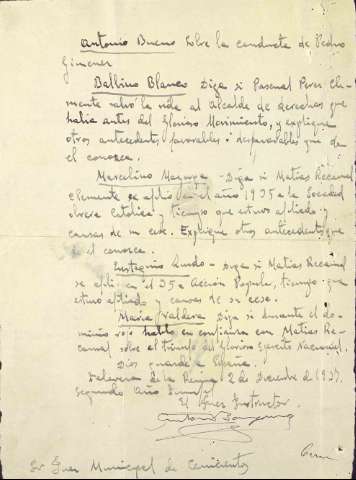 Antonio Bueno sobre la conducta de Pedro
Gimenez
Balbino Blanco Diga si Pascual Perez Cle-
mente salvó la vida al Alcalde de derechas que
habia antes del Glorioso Movimiento, y explique
otros antecedentes favorables o desfavorables que de
el conozca.
Marcelino - Diga si Matias Recamal
Clemente se afilió en el año 1935 a la Sociedad
obrera Catolica y tiempo que estuvo afiliado y
causas de su cese. Explique otros antecedentes que
de el conozca.
Eustaquio - Diga si Matias Recamal
se afilió en el 35 a Acción Popular, tiempo que
estuvo afiliado y causas de su cese.
Maria Valdera Diga si durante el do-
minio rojo habló en confianza con Matias Re-
camal sobre el triunfo del Glorioso Ejercito Nacional.
Dios guarde a España.
Talavera de la Reina 12 Diciembre de 1937.
Segundo Año Triunfal
El Juez Instructor
Antonio
Sr Juez Municipal de Cenicientos